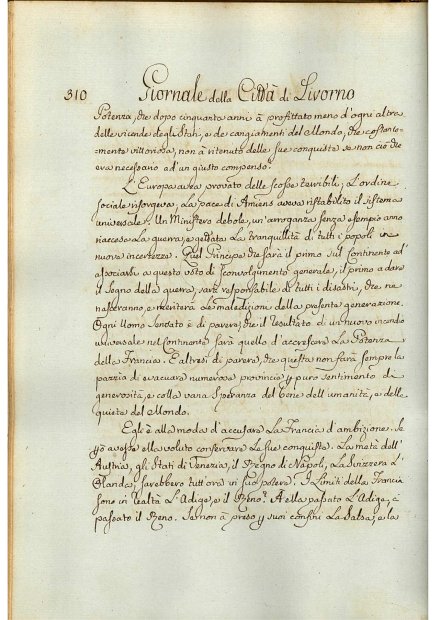 310 Giornale della Città di Livorno
Potenza, che dopo cinquanta anni à profittato meno d'ogni altra
delle vicende degli Stati, e de cangiamenti del Mondo, che costante-
=mente vittoriosa, non à ritenuto delle sue conquiste se non ciò che
era necessario ad'un giusto compenso.
L'Europa avea provato delle scosse terribili, L'ordine
sociale risorgeva, La pace di Amiens aveva ristabilito il sistema
universale. Un Ministero debole, un'arroganza senza esempio anno
riaccesa La guerra, e gettata La tranquillità di tutti i popoli in
nuove incertezze. Quel Principe che sarà il primo sul Continente ad'
associarsi a questo voto di sconvolgimento generale, il primo a dare
il segno della guerra, sarà responsabile di tutti i disastri, che ne
nasceranno, e meriterà Le maledizioni della presente generazione.
Ogni Uomo sensato è di parere, che il resultato di un nuovo incendio
universale nel Continente sarà quello d'accrescere La Potenza
della Francia. E altresì di parere, che questa non farà sempre la
pazzia di evacuare numerose provincie p puro sentimento di
generosità, e colla vana speranza del bene dell'umanità, e della
quiete del Mondo.
Egli è alla moda d'accusare La Francia d'ambizione. Se
però avesse ella voluto conservare Le sue conquiste. La metà dell'
Austria, gli Stati di Venezia, il Regno di Napoli, La Svizzera L'
Olanda, sarebbero tutt'ora in suo potere. I Limiti della Francia
sono in realtà L'Adige, e il Reno. A ella passato L'Adige, à
passato il Reno. Se non à preso p suoi confini La Salsa, e la